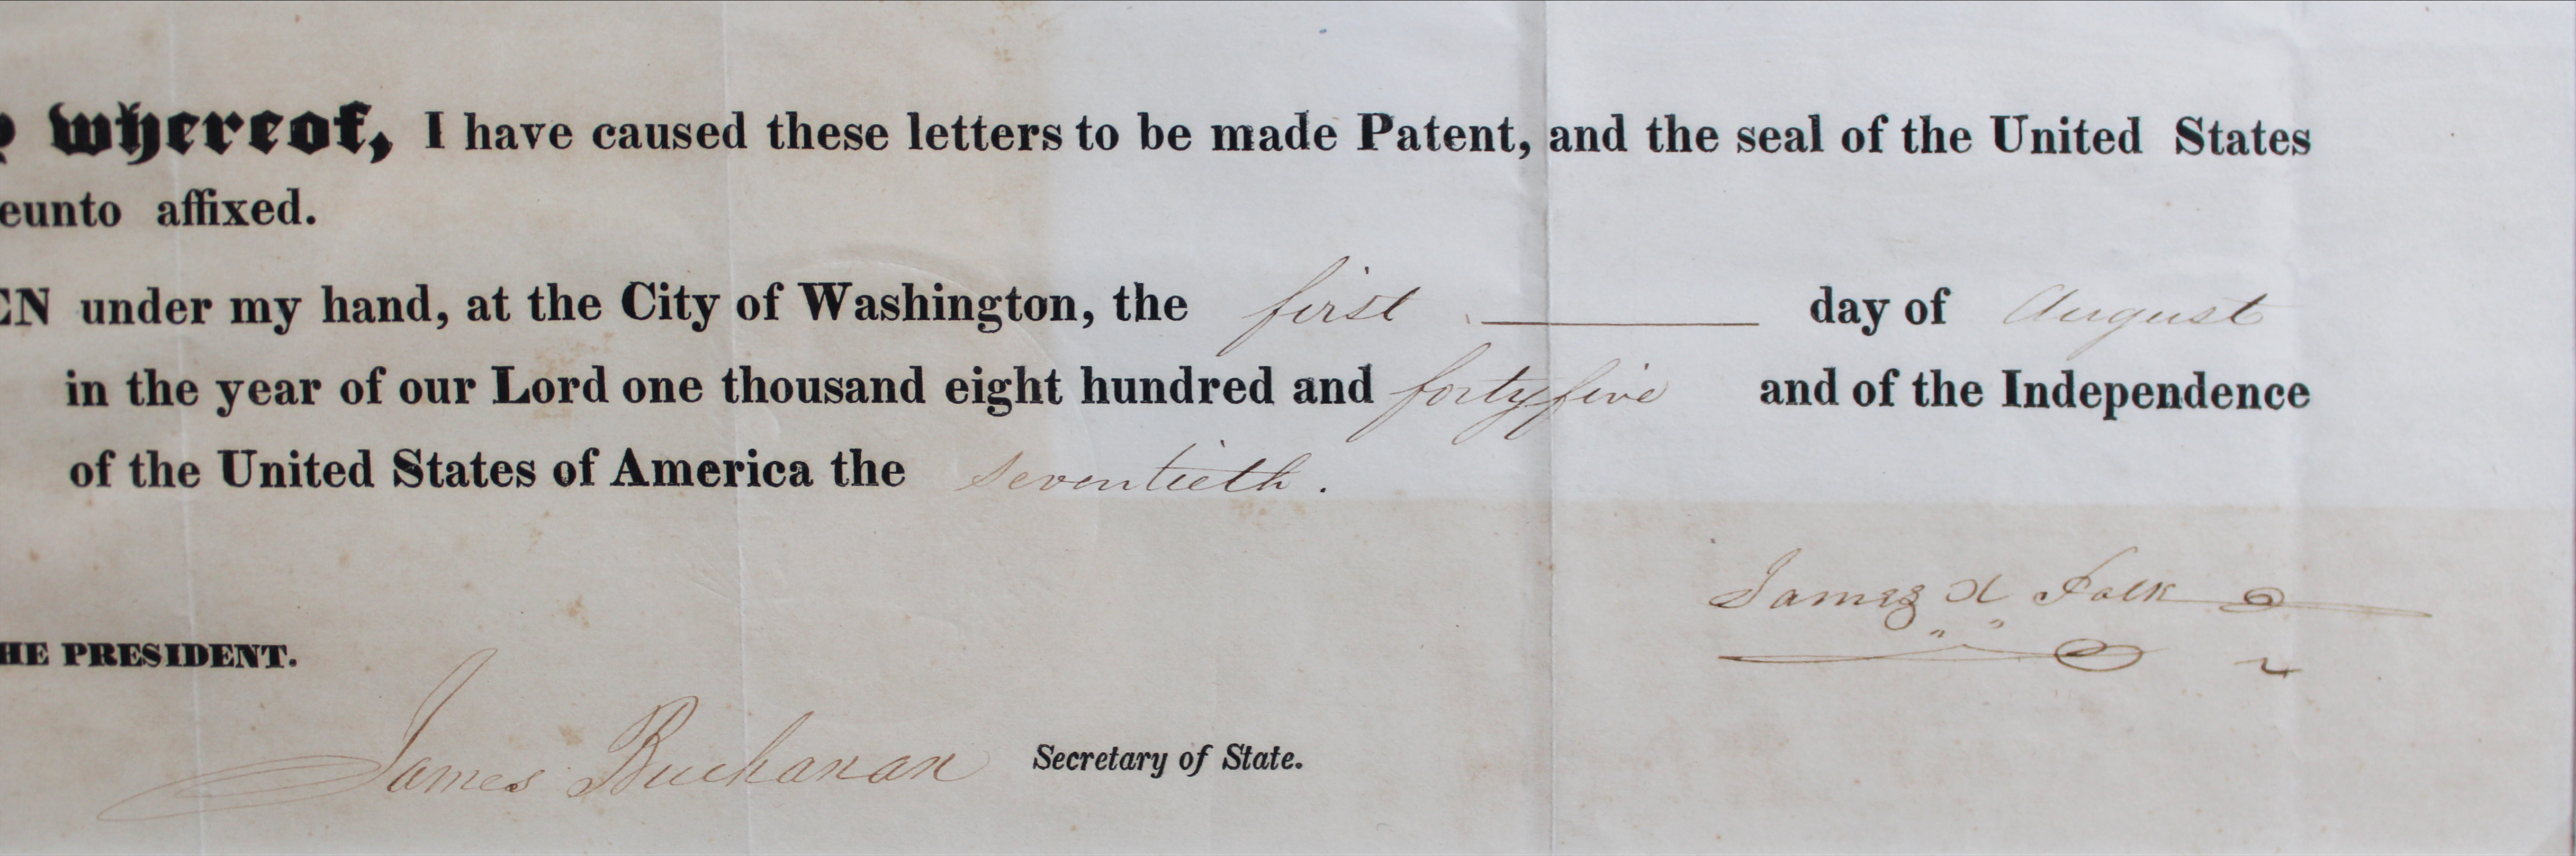 whereof, I have caused these letters to be made Patent, and the seal of the United States
eunto affixed.
EN under my hand, at the City of Washington, the first day of August
in the year of our Lord one thousand eight hundred and forty five and of the Independence
of the United States of America the seventieth.
James K Polk
HE PRESIDENT.
James Buchanan Secretary of State.